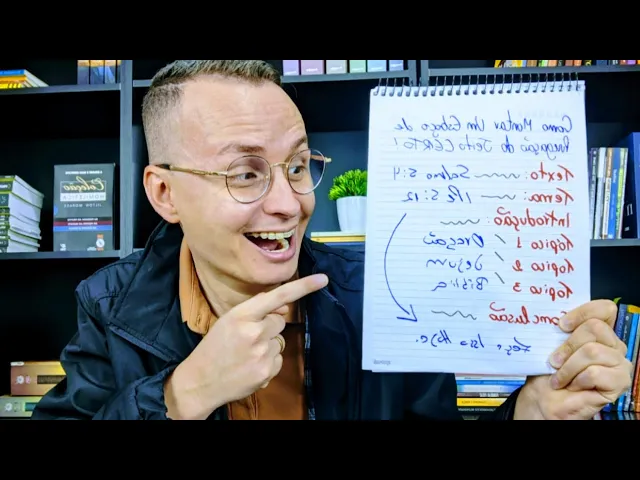 Como Montar Um Esboço de
Pregação do Jeito CERTO!
Texto: Salmo 5:4
Tema: 1 Pe 5:12
Introdução:
Tópico 1 Oração
Tópico 2 Jejum
Tópico 3 Bíblia
Conclusão
Faça Isso Hoje.
Coleção
HOMILÉTICA